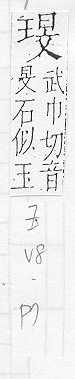 武巾切音
旻石似玉
玉
V8
-